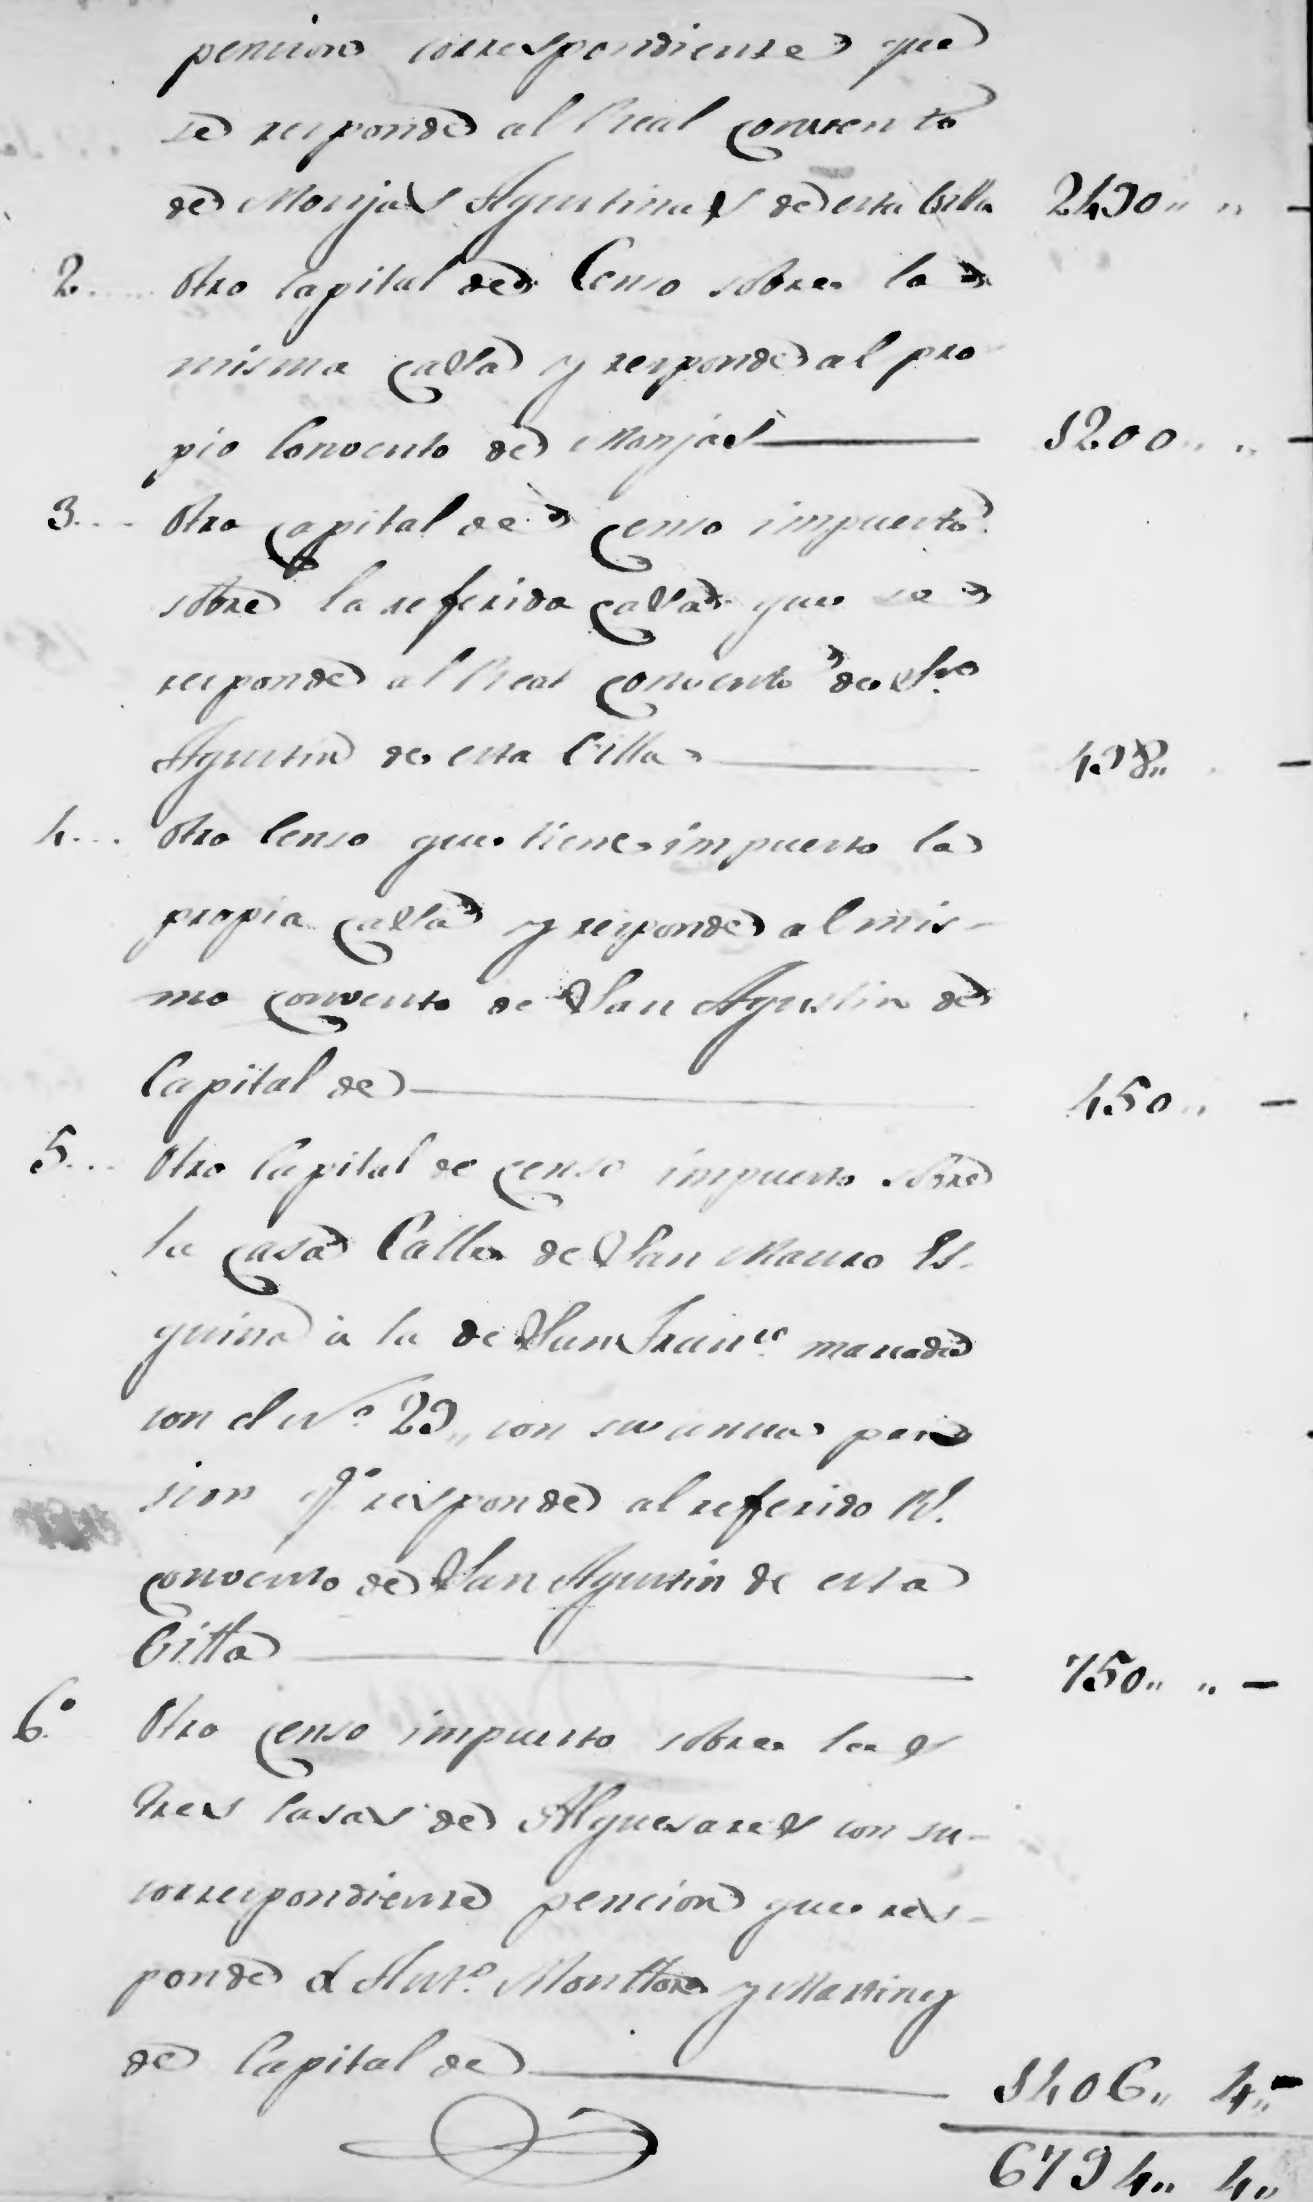 pencion correspondiente que
se responde al Real convento
de Monjas Agustinas de esta Villa 2490,, ,, —
2.... Otro Capital de Censo sobre la
misma casa y responde al pro
pio Convento de Monjas 1200,, ,, —
3... Otro capital de censo impuesto
sobre la referida casa que se
responde al Real convento de Sn
Agustin de esta Villa 498,, —
4... Otro Censo que tiene impuesto la
propia casa y responde al mis-
mo convento de San Agustin de
Capital de 450,, —
5... Otro Capital de censo impuesto sobre
la casa Calle de San Mauro Es-
quina à la de San Franco. marcada
con el No 29,, con su annua pen
sion qe. responde al referido Rl.
convento de San Agustin de esta
Villa 750,, ,, —
6.o Otro censo impuesto sobre las
tres Casas de Alguesares con su-
correspondiente pencion que res-
ponde à Anto. Montlloré y Martines
de Capital de 1406,, 4,, —
6794,, 4,,